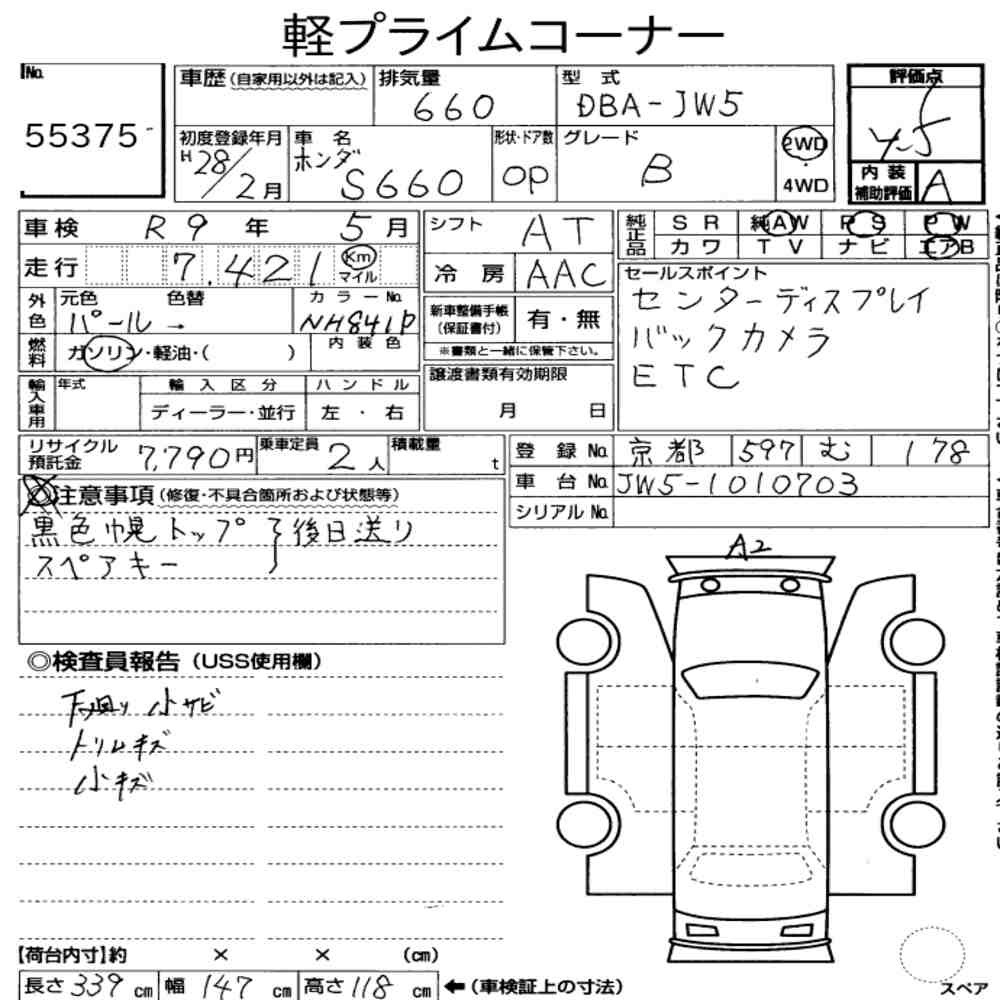 軽プライムコーナー
No. 55375
車歴 (自家用以外は記入)
排気量 660
型式 DBA-JW5
評価点 4.5
初度登録年月 H28/2月
車名 ホンダ S660
形状・ドア数 OP
グレード B
2WD・4WD
内装補助評価 A
車検 R9年 5月
シフト AT
純正品 SR 純AW PS PW
カワ TV ナビ エアB
走行 7,421 Km マイル
冷房 AAC
セールスポイント
センターディスプレイ
バックカメラ
ETC
外色 元色 パール → 色替 カラーNo. NH841P
新車整備手帳(保証書付) 有・無
※書類と一緒に保管下さい。
燃料 ガソリン・軽油・( ) 内装色
輸入車用 年式 輸入区分 ハンドル
ディーラー・並行 左・右
譲渡書類有効期限
月 日
リサイクル預託金 7,790円
乗車定員 2人
積載量 t
登録No. 京都 597 む 178
車台No. JW5-1010703
シリアルNo.
◎注意事項 (修復・不具合箇所および状態等)
黒色幌トップ } 後日送り
スペアキー
A2
◎検査員報告 (USS使用欄)
下廻り小サビ
トリムキズ
小キズ
【荷台内寸】約 × × (cm)
長さ 339 cm 幅 147 cm 高さ 118 cm ←(車検証上の寸法)
スペア